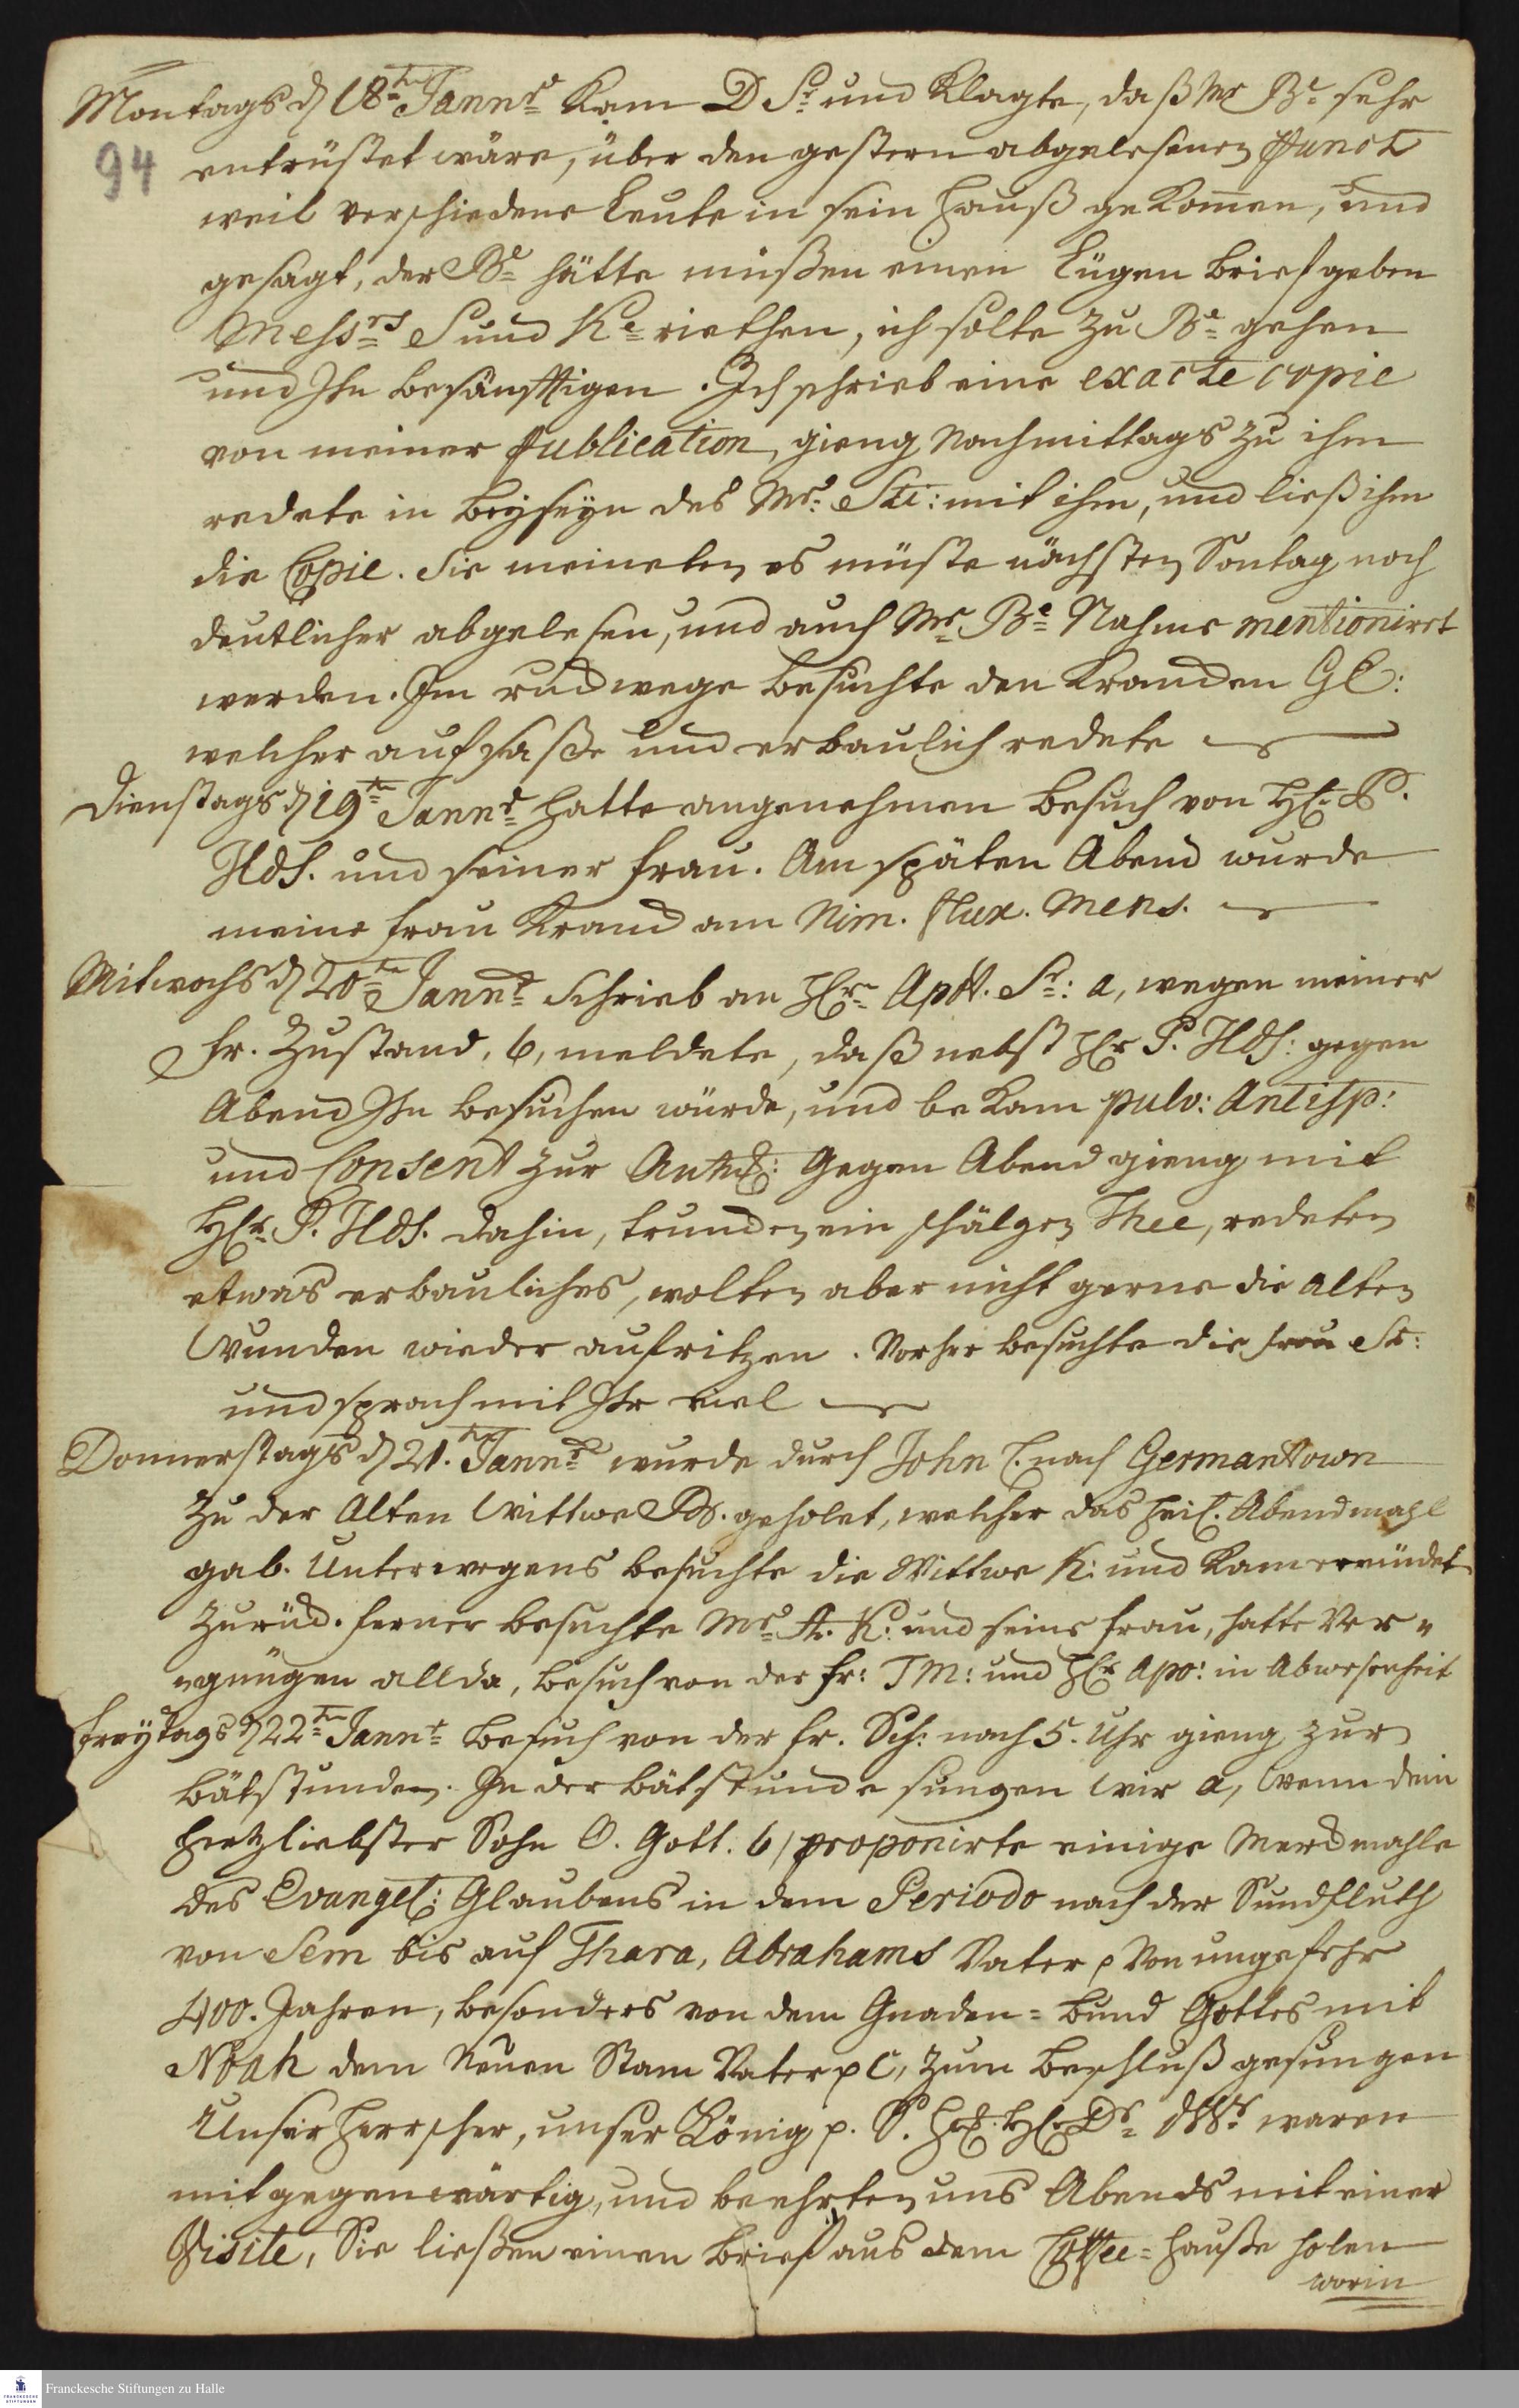 Montags d 18ten Janr Kam D Sr und Klagte, daß Mr Be sehr
94
entrüstet wäre, über den gestern abgelesenen Punct
weil verschiedene Leute in sein Hauß gekom̅en, und
gesagt, der Be hätte müßen einen Lügen brief geben
Messrs S und Ke riethen, ich solte zu Be gehen
und Ihn besänfftigen. Ich schrieb eine exacte copie
von meiner Publication, gieng Nachmittags zu ihm
redete in beyseyn des Mr: Ski: mit ihm, und ließ ihm
die Copie. Sie meineten es müste nächsten Sontag noch
deutlicher abgelesen, und auch Mr Be Nahme mentioniret
werden. Im rückwege besuchte den Krancken Gl:
welcher auf saße und erbaulich redete
Dienstags d 19ten Janr hatte angenehmen besuch von HE. P.
Hds. und seiner Frau. Am späten Abend wurde
meine Frau Kranck am Nim. flux. Mens.
Mitwochs d 20ten Janr Schrieb an HEr Apth. Sr: a, wegen meiner
Fr. Zustand, b, meldete, daß nebst HEr P. Hds: gegen
Abend Ihn besuchen würde, und bekam pulv: Antisp:
und Consent zur Gegen Abend gieng mit
HEr P. Hds. dahin, truncken ein schälgen Thee, redeten
etwas erbauliches, wolten aber nicht gerne die alten
Wunden wieder aufritzen. Vorher besuchte die frau Sk:
und sprach mit Ihr viel
Donnerstags d 21. ten Janr wurde durch John C. nach Germantown
zu der Alten Wittwe geholet, welcher das Heil. Abendmahl
gab. Unterwegens besuchte die Wittwe K: und Kam ermüdet
zurück. ferner besuchte Mr Fr. K: und seine Frau, hatte Ver„
„gnügen allda, besuch von der fr: TM: und HEr Apo: in Abwesenheit
Freytags d 22ten Janr besuch von der fr. Sch: nach 5. Uhr gieng zur
bätstunden. In der bätstunde sungen wir a, Wenn dein
hertzliebster Sohn O. Gott. b, proponirte einige Merckmahle
des Evangel: Glaubens in dem Periodo nach der Sündfluth
von Sem bis auf Thara, Abrahams Vater p von ungefehr
400. Jahren, besonders von dem Gnaden=bund Gottes mit
Noah dem Neuen Stam Vater p C, zum beschluß gesungen
Unser Herrscher, unser König p. P. HEr Dr Wr: waren
mit gegenwärtig, und beehrten uns Abends mit einer
Visite, Sie ließen einen brief aus dem Coffee=Hauße holen
worin
Franckesche Stiftungen zu Halle